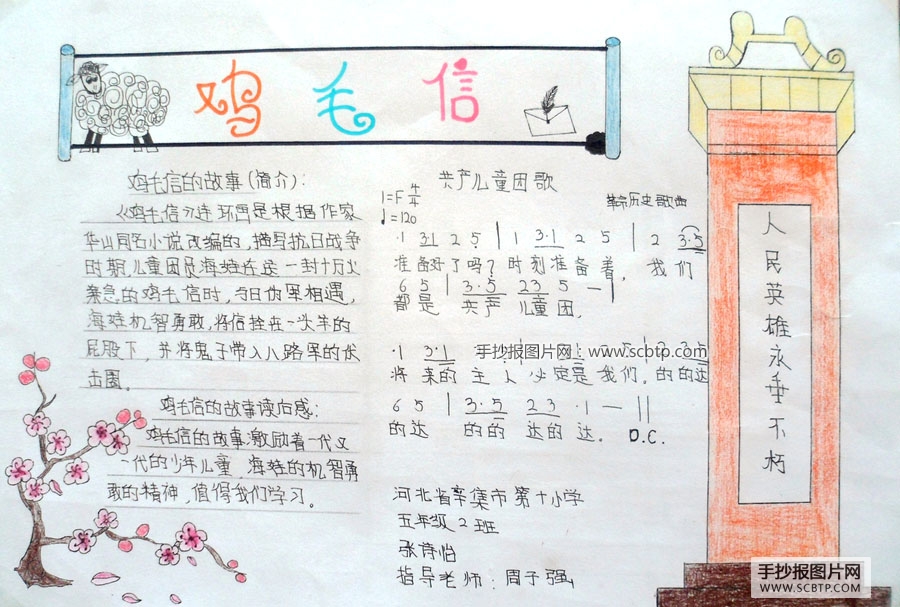 鸡毛信
鸡毛信的故事(简介):
《鸡毛信》连环画是根据作家
华山同名小说改编的,描写抗日战争
时期,儿童团员海娃在送一封十万火
急的鸡毛信时,与日伪军相遇,
海娃机智勇敢,将信拴在一头羊的
屁股下,并将鬼子带入八路军的伏
击圈。
鸡毛信的故事读后感:
鸡毛信的故事激励着一代又
一代的少年儿童,海娃的机智勇
敢的精神,值得我们学习。
共产儿童团歌
1=F 4/4
♩=120
革命历史歌曲
·1 31 2 5 | 1 3·1 2 5 | 2 3·5
准备好了吗?时刻准备着,我们
6 5 | 3·5 23 5 — |
都是 共产 儿童团,
·1 3·1
手抄报图片网:www.scbtp.com
将来的主人 必定是我们。的的达
6 5 | 3·5 23 ·1 — ||
的达 的的 达的达. D.C.
河北省辛集市第十小学
五年级2班
张诗怡
指导老师:周子强
人民英雄永垂不朽
手抄报图片网
WWW.SCBTP.COM